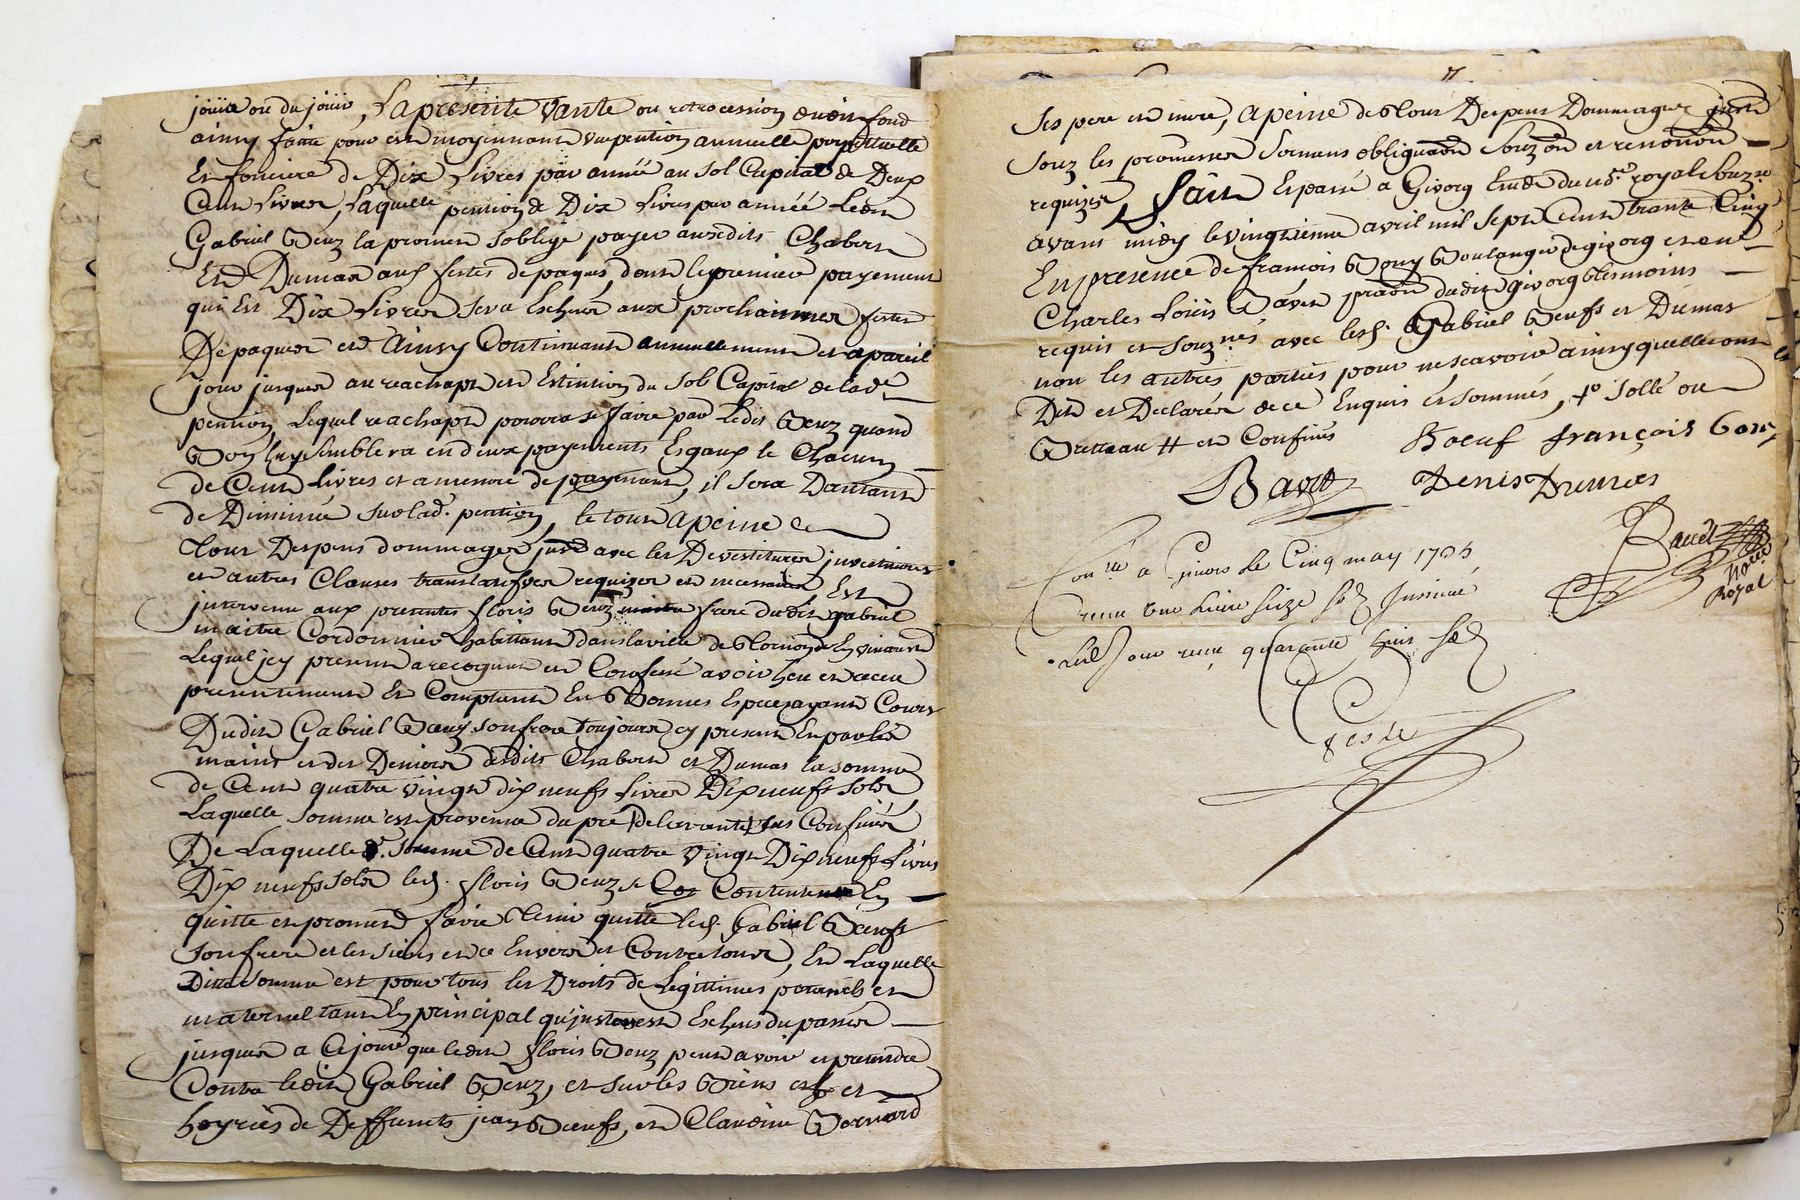 jouire ou du jouir, La présente vante ou retrocession dudit fond
ainsy faitte pour et moyennant un pention annuelle perpetuelle
Et fonciere de Dix Livres par année au sol Capital de Deux
Cent Livres, Laquelle pention de Dix Livres par année Ledit
Gabriel Beuz la promis soblige payer ausdits Chabert
Et Dumas aux festes de paques, dont le premiere payement
qui Est Dix Livres sera Escheue aux prochainnes festes
De paques et Ainsy Continuant annuellement et a pareil
jour jusques au reachapt et Extintion du sol Capital de lade
pention, Lequel reachapt pourra se faire par Ledit Beuz quand
Bon luy semblera en deux payements Esgaux le Chacun
de Cent Livres et amesure de payement, il sera Dautant
de Diminué sur lad. pention, le tout a peine de
tour Despens dommages jusd avec les Devestitures jnvestitures
et autres Clauses translatifves requizes et necessaires, Est
jntervenu aux presentes floris Beuz frere dudit gabriel
maitre Cordonnier habittant dans la ville de en vivarest
Lequel jcy present a recognu et Confessé avoir heu et receu
presentement Et Comptant En Bonnes Especes ayant Cours
Dudit Gabriel Beuz son frere toujours cy present En
mains et des Deniers desdits Chabert et Dumas la somme
de Cent quatre vingt dix neufs Livres Dix neufs sols
Laquelle somme est provenue du pré (de la vante) sus Confinés
De Laquelle de. somme de Cent quatre vingt Dix neufs Livres
Dix neufs sols led. floris Beuz se Contente En
quitte et promest faire tenir quitte led. Gabriel Beufs
son frere et les siens et ce Envers et Contre tous, Et Laquelle
Ditte somme est pour tous les Droits de Legittimes paternels et
maternel tant En principal qu'justerest Eschus du passés
jusques a Ce jour que ledit floris Beuz peut avoir et pretendre
Contre ledit Gabriel Beuz, et sur les Biens et
hoyries de Deffunts jean Beufs, et Claudine Bernard
Ses pere et mere, a peine de tour Despens Dommages
Souz les promesses Sermens obligaon Souzon et renonon
requizes, Fait Et passé a Givorg Etude du nore royal Souzne
avant midy le vingtieme avril mil sept Cent trante Cinq
En presence de francois Bony Boulanger de givorg et de me
Charles Loüis Bavet praon dudit givorg tesmoins
requis et souznés avec lesd. Gabriel Beufs et Dumas
non les autres parties pour ne scavoir ainsy quelle ont
Dit et Declarés de ce Enquis et sommés, sollé ou
et Confinés Boeuf françois Bony
Bavet Denis Dumas
Bavet
Nore
Royal
Conlle a Givors Le Cinq may 1735
receu une Livre seize sols Jnsinué
receu quarante huit sols